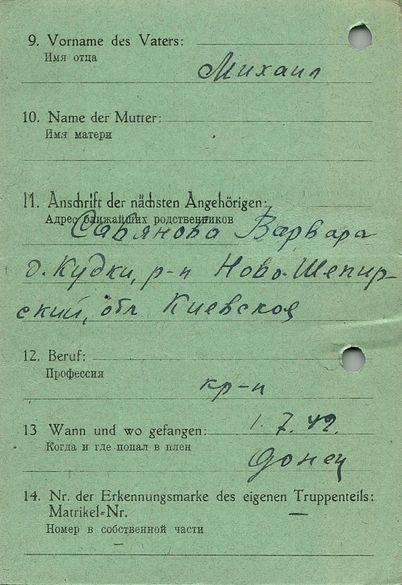 9. Vorname des Vaters:
Имя отца
Михаил
10. Name der Mutter:
Имя матери
11. Anschrift der nächsten Angehörigen:
Адрес ближайших родственников
Савянова Варвара
д. Кудки, р-н Ново-Шепир-
ский, обл Киевская
12. Beruf:
Профессия
кр-н
13 Wann und wo gefangen:
1.7.42.
Когда и где попал в плен
Донец
14. Nr. der Erkennungsmarke des eigenen Truppenteils:
Matrikel-Nr. –
Номер в собственной части